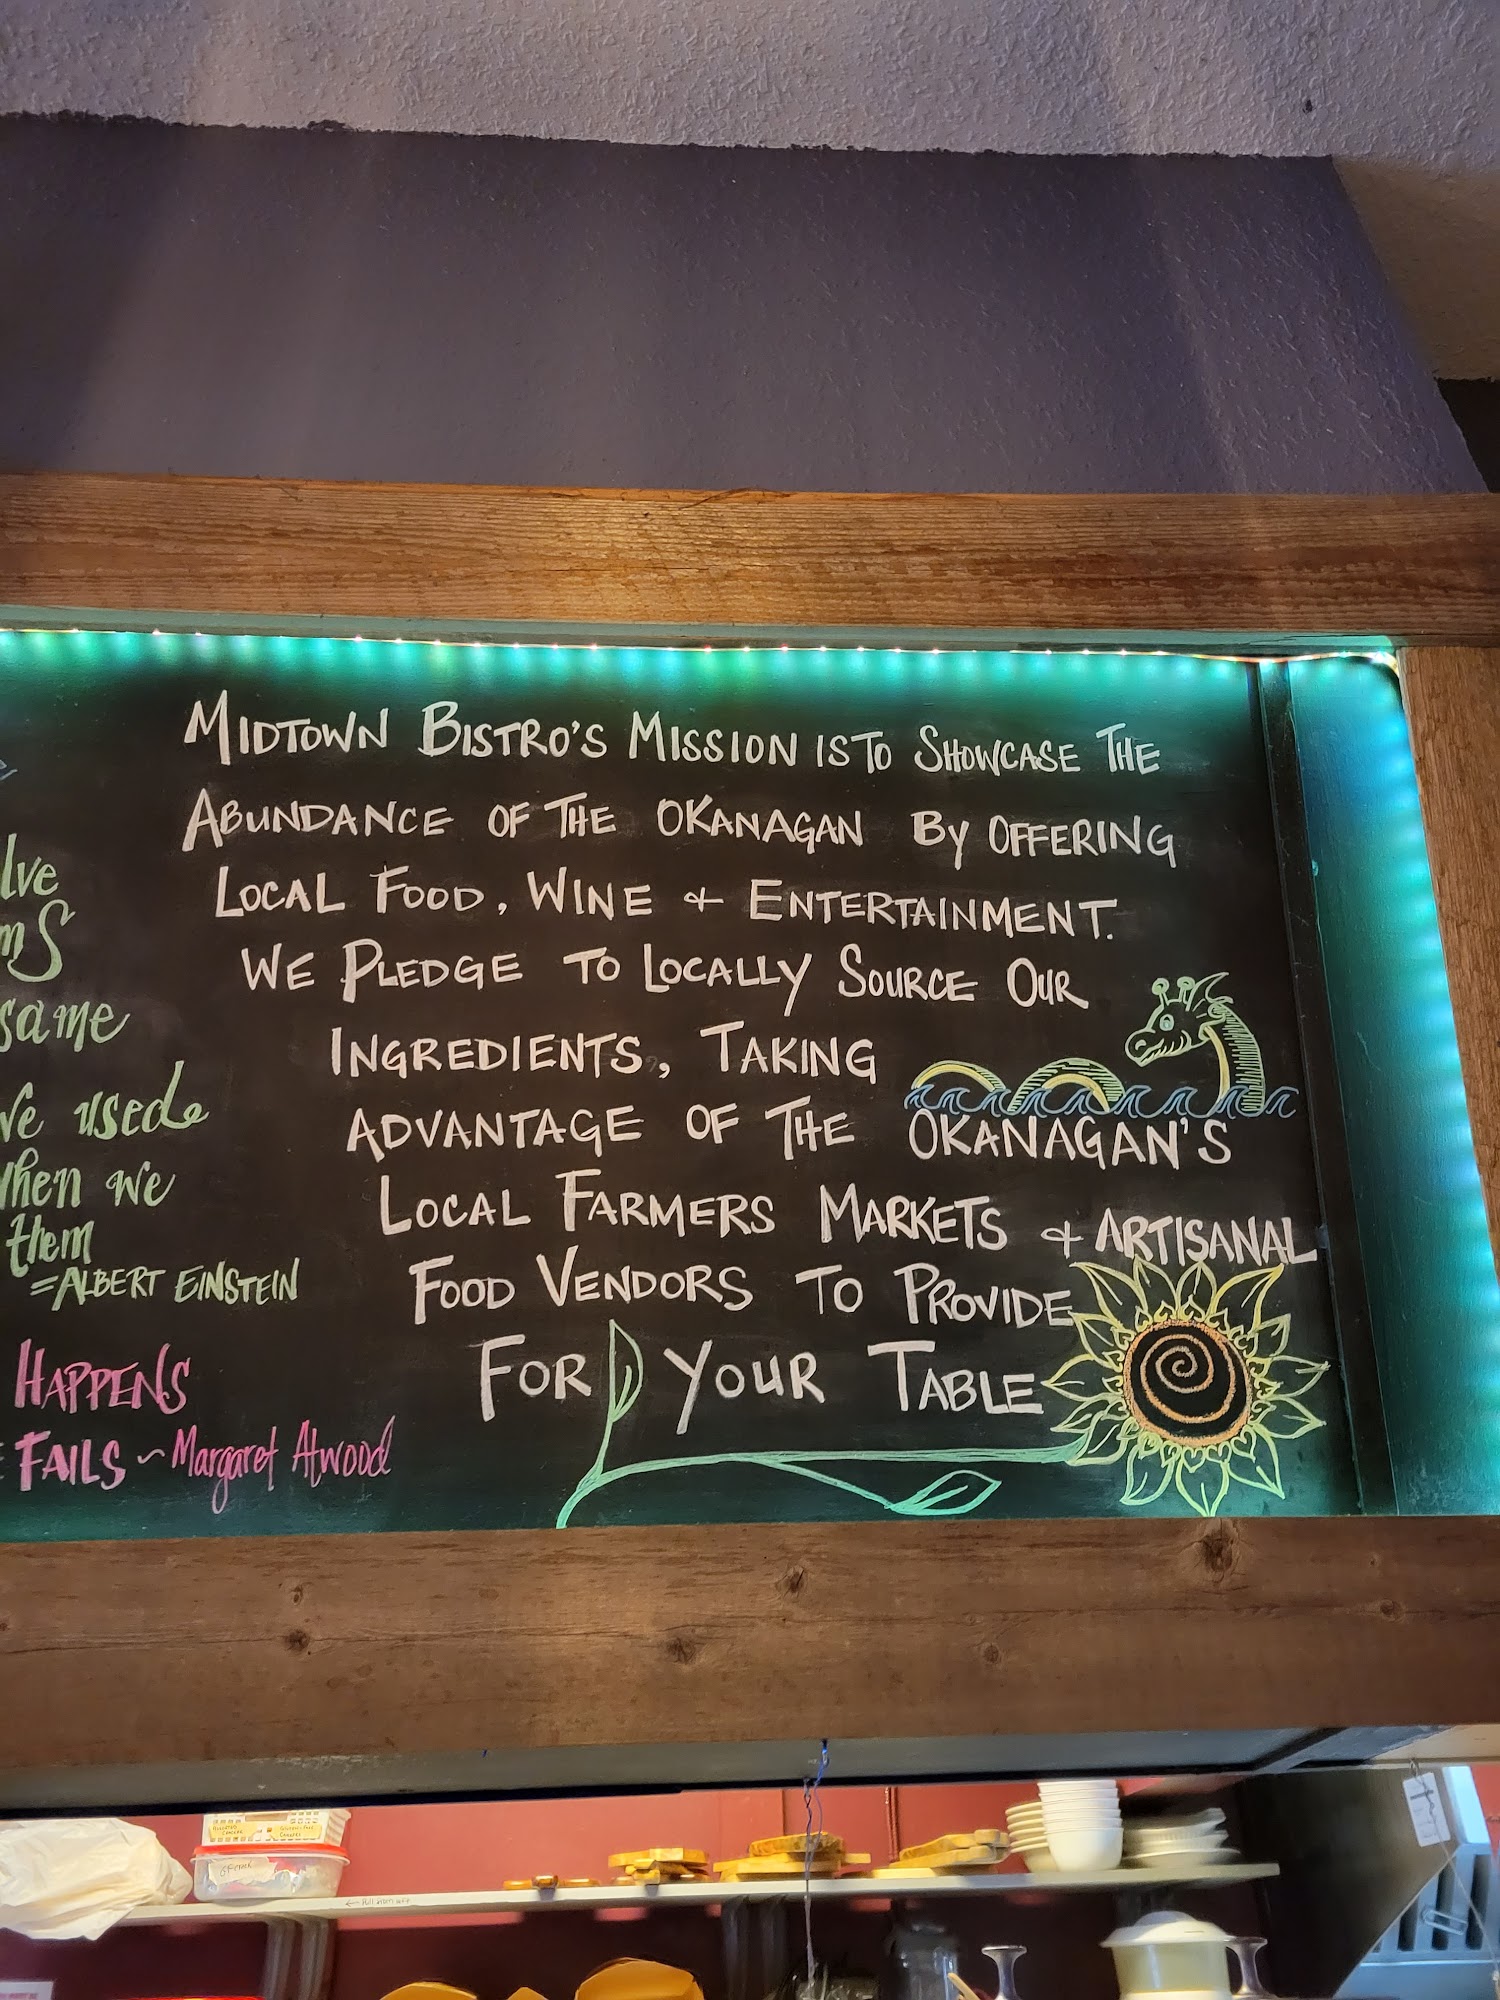 MIDTOWN BISTRO'S MISSION IS TO SHOWCASE THE
ABUNDANCE OF THE OKANAGAN BY OFFERING
LOCAL FOOD, WINE & ENTERTAINMENT.
WE PLEDGE TO LOCALLY SOURCE OUR
INGREDIENTS, TAKING
ADVANTAGE OF THE OKANAGAN'S
LOCAL FARMERS MARKETS & ARTISANAL
FOOD VENDORS TO PROVIDE
FOR YOUR TABLE
lve
ms
same
ve used
when we
them
=ALBERT EINSTEIN
HAPPENS
FAILS ~ Margaret Atwood